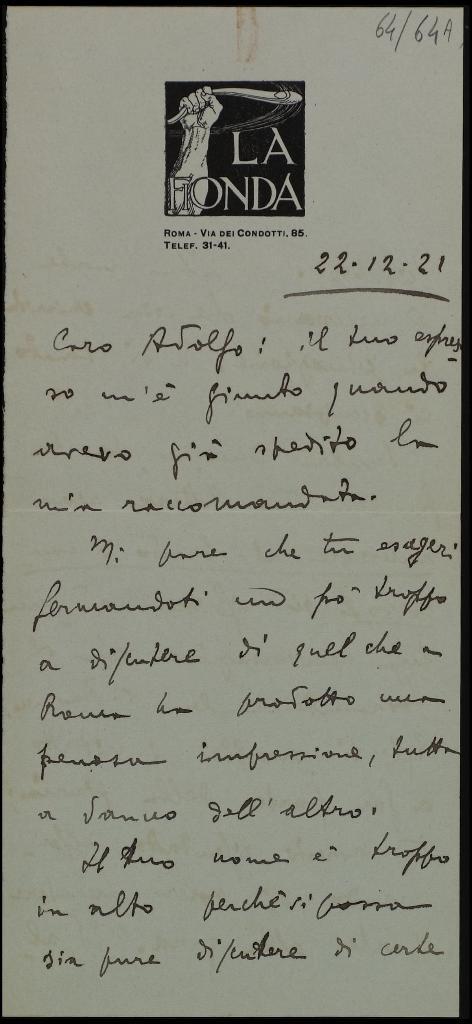 64/64A
LA
FIONDA
ROMA - VIA DEI CONDOTTI, 85.
TELEF. 31-41.
22-12-21
Caro Adolfo: il tuo espres
so m'è giunto quando
avevo già spedito la
mia raccomandata.
Mi pare che tu esageri
fermandoti un pò troppo
a discutere di quel che a
Roma ha prodotto una
penosa impressione, tutta
a danno dell'altro.
Il tuo nome è troppo
in alto perchè si possa
sia pure discutere di certe